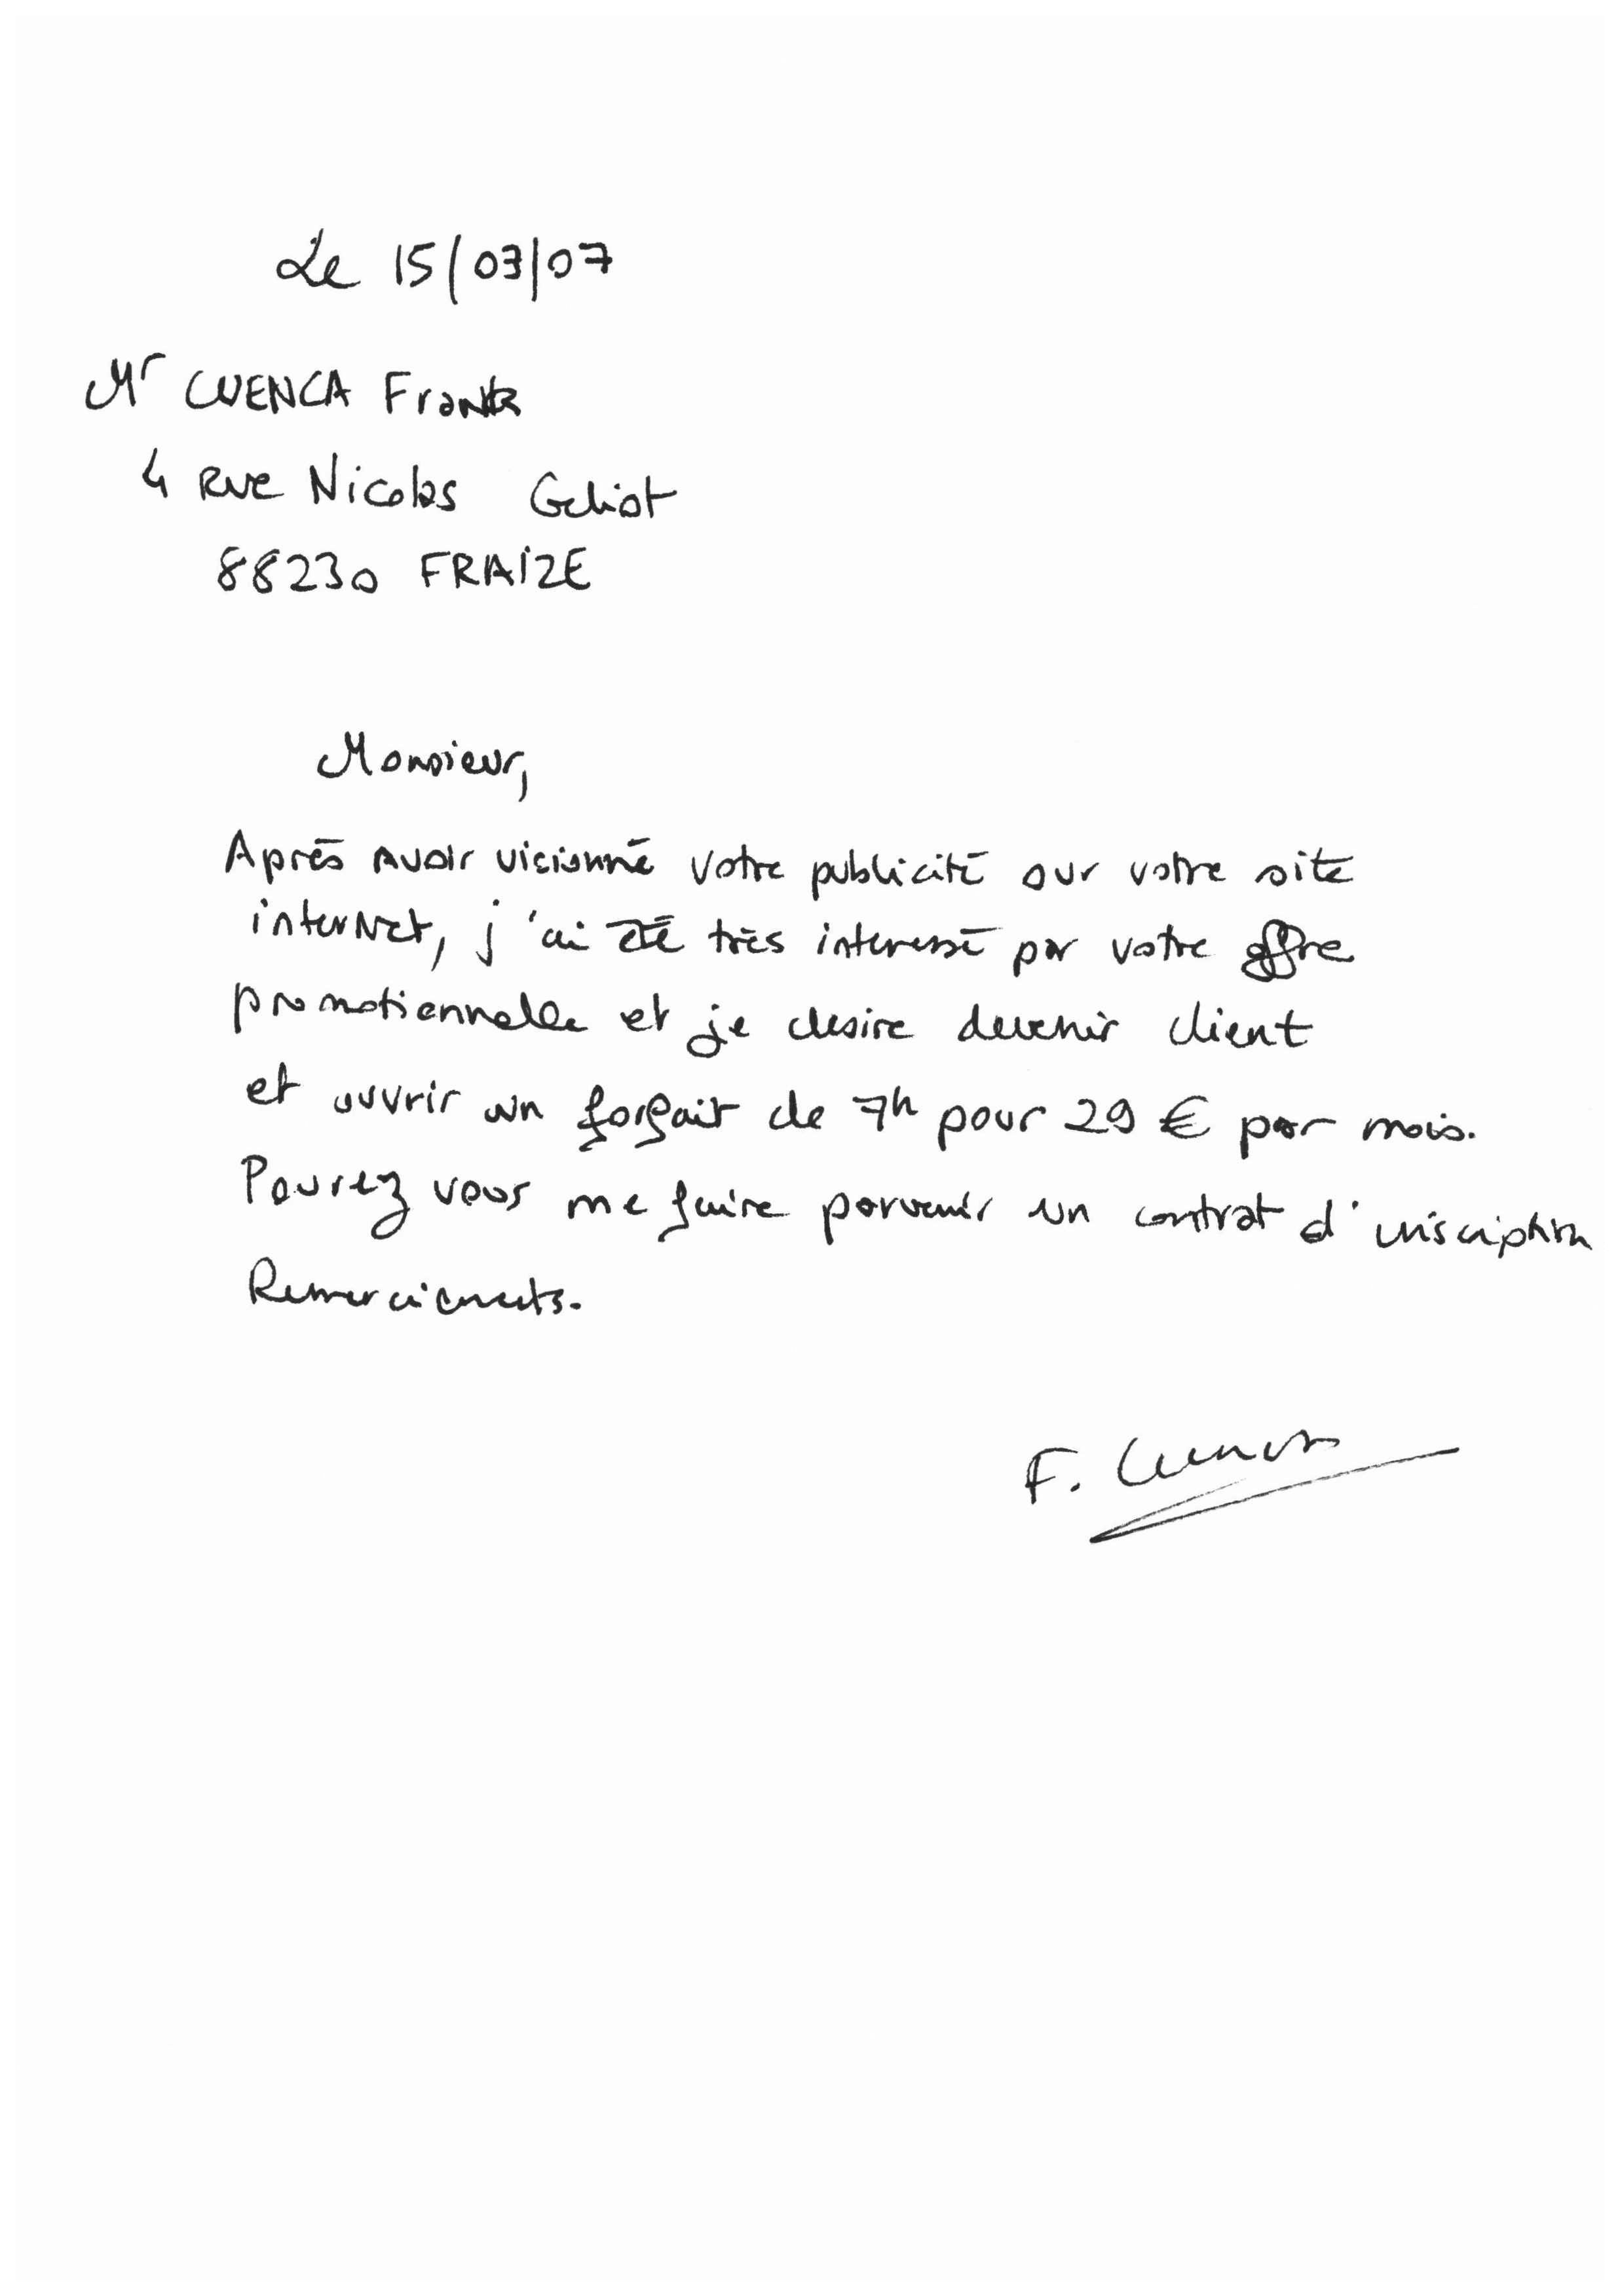 Le 15/03/07
Mr CUENCA Franck
4 Rue Nicolas Geliot
88230 FRAIZE
Monsieur,
Après avoir visionné votre publicité sur votre site
internet, j'ai été très interessé par votre offre
promotionnelle et je desire devenir client
et ouvrir un forfait de 7h pour 29 € par mois.
Pourez vous me faire parvenir un contrat d'inscription
Remerciements.
F. Cuenca